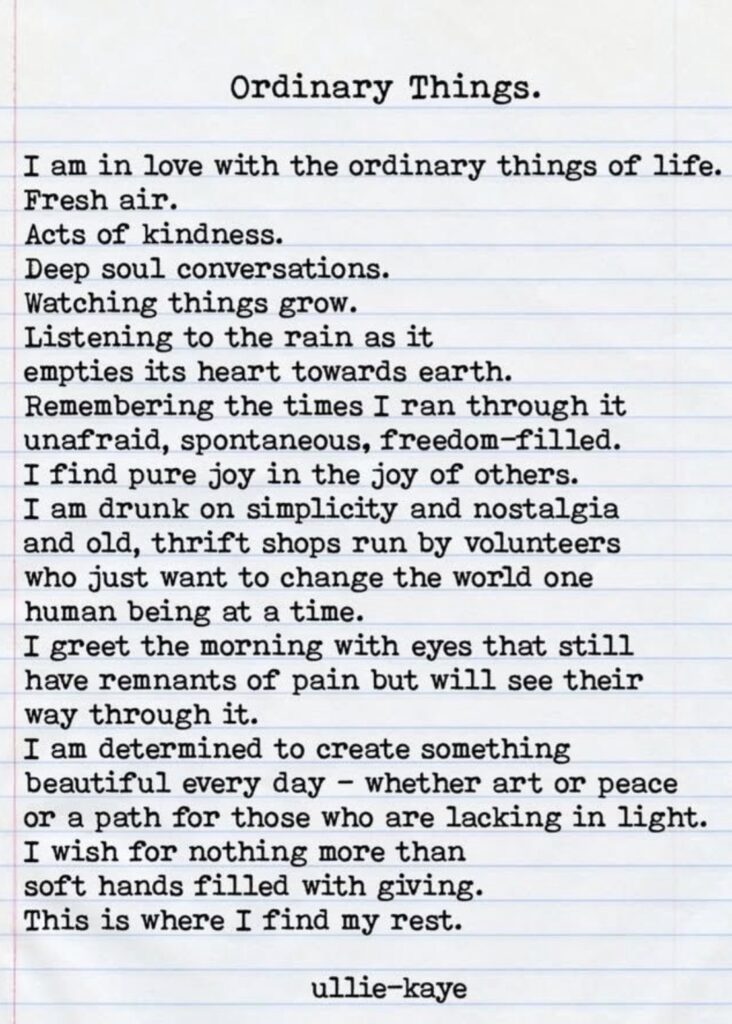 Ordinary Things.
I am in love with the ordinary things of life.
Fresh air.
Acts of kindness.
Deep soul conversations.
Watching things grow.
Listening to the rain as it
empties its heart towards earth.
Remembering the times I ran through it
unafraid, spontaneous, freedom-filled.
I find pure joy in the joy of others.
I am drunk on simplicity and nostalgia
and old, thrift shops run by volunteers
who just want to change the world one
human being at a time.
I greet the morning with eyes that still
have remnants of pain but will see their
way through it.
I am determined to create something
beautiful every day - whether art or peace
or a path for those who are lacking in light.
I wish for nothing more than
soft hands filled with giving.
This is where I find my rest.
ullie-kaye